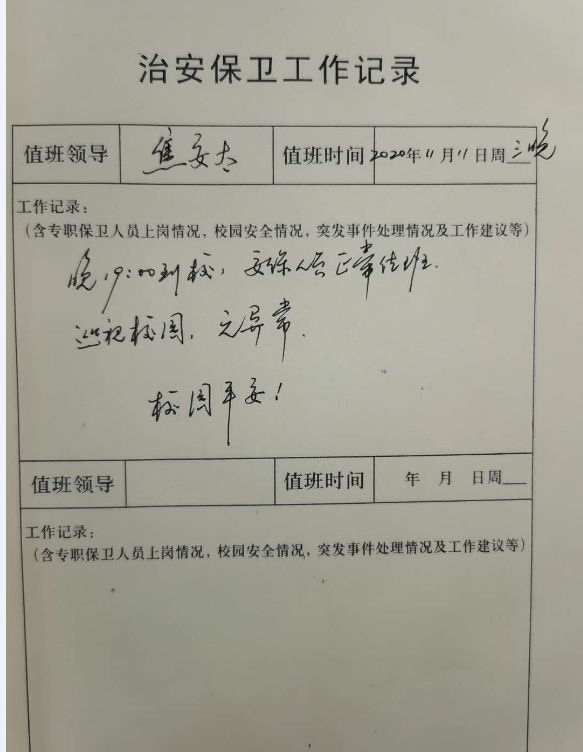 治安保卫工作记录
值班领导 焦安太 值班时间 2020年11月11日周三晚
工作记录:
(含专职保卫人员上岗情况,校园安全情况,突发事件处理情况及工作建议等)
晚19:00到校,安保人员正常值班.
巡视校园,无异常.
校园平安!
值班领导 值班时间 年 月 日周
工作记录:
(含专职保卫人员上岗情况,校园安全情况,突发事件处理情况及工作建议等)